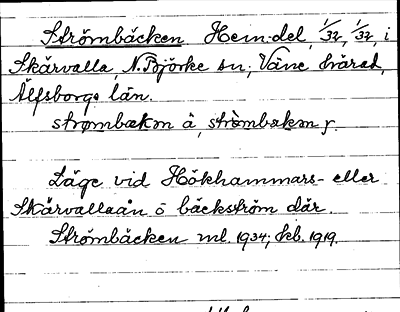 Strömbäcken Hem.del, 1/32, 1/32, i
Skårvalla, N. Björke sn; Väne härad,
Älfsborgs län.
strømbækɘn å, strømbakɘn y.
Läge vid Hökhammars- eller
Skårvallaån o bäckström där.
Strömbäcken ml. 1934; Jkb. 1919.